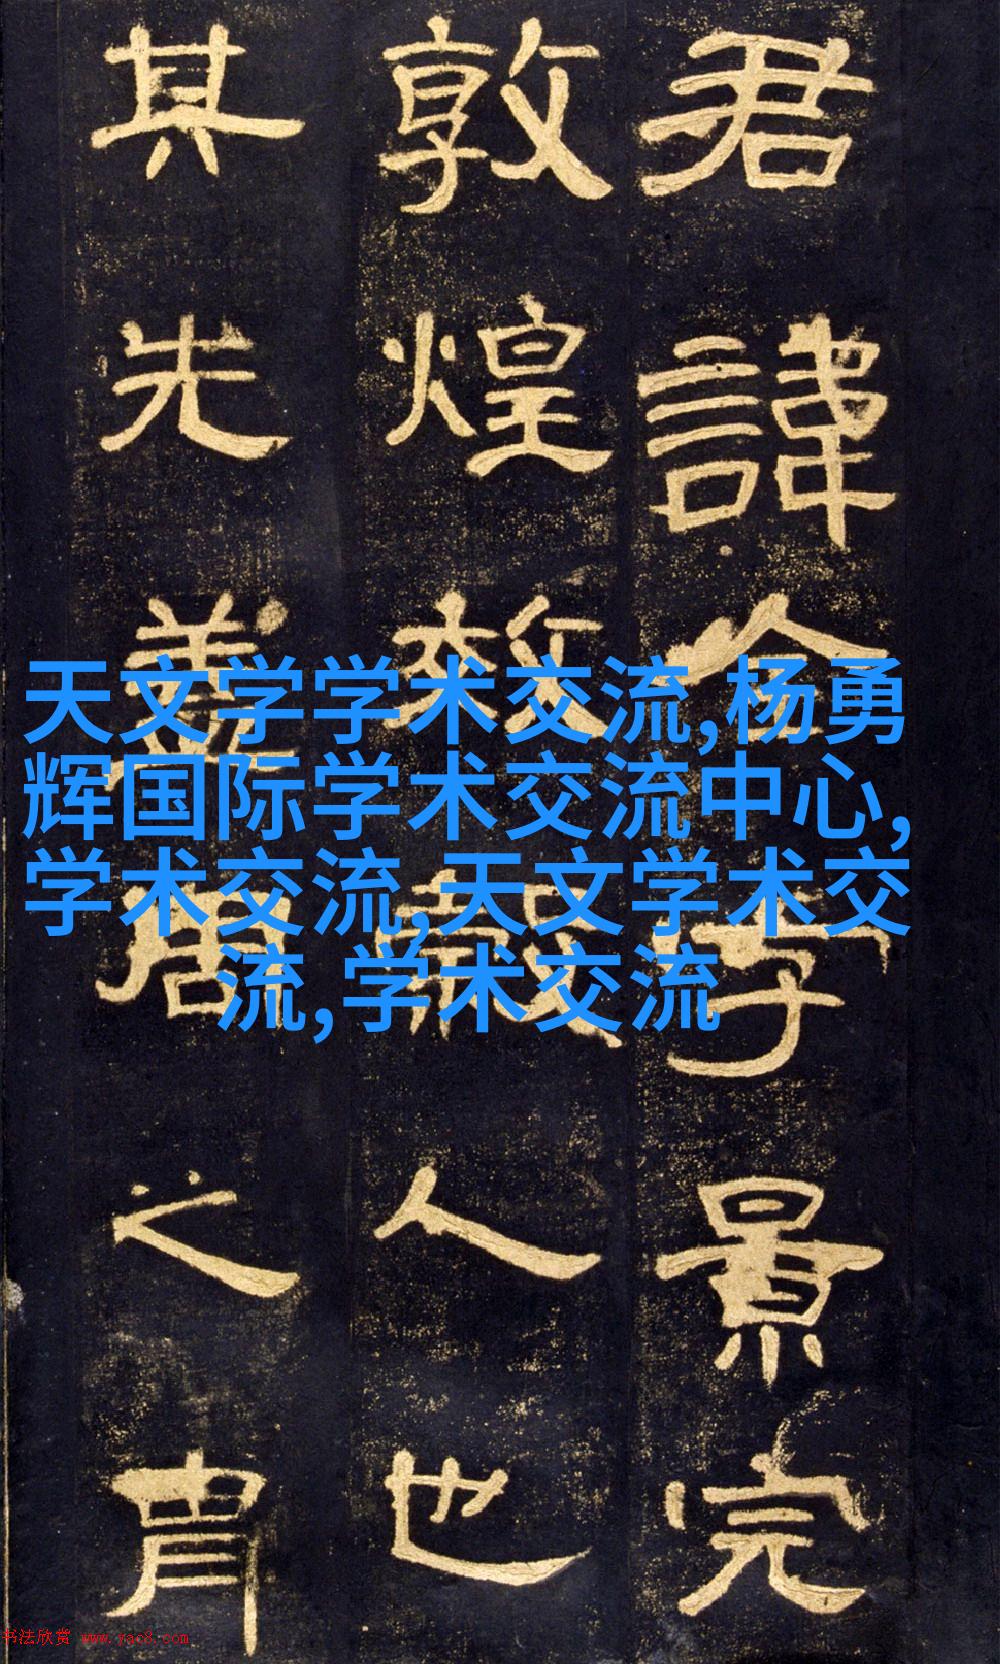 君諱全字景完
敦煌效穀人也
其先蓋周之胄
天文学学术交流,杨勇
辉国际学术交流中心,
学术交流,天文学术交
流,学术交流
书法欣赏 www.yac8.com